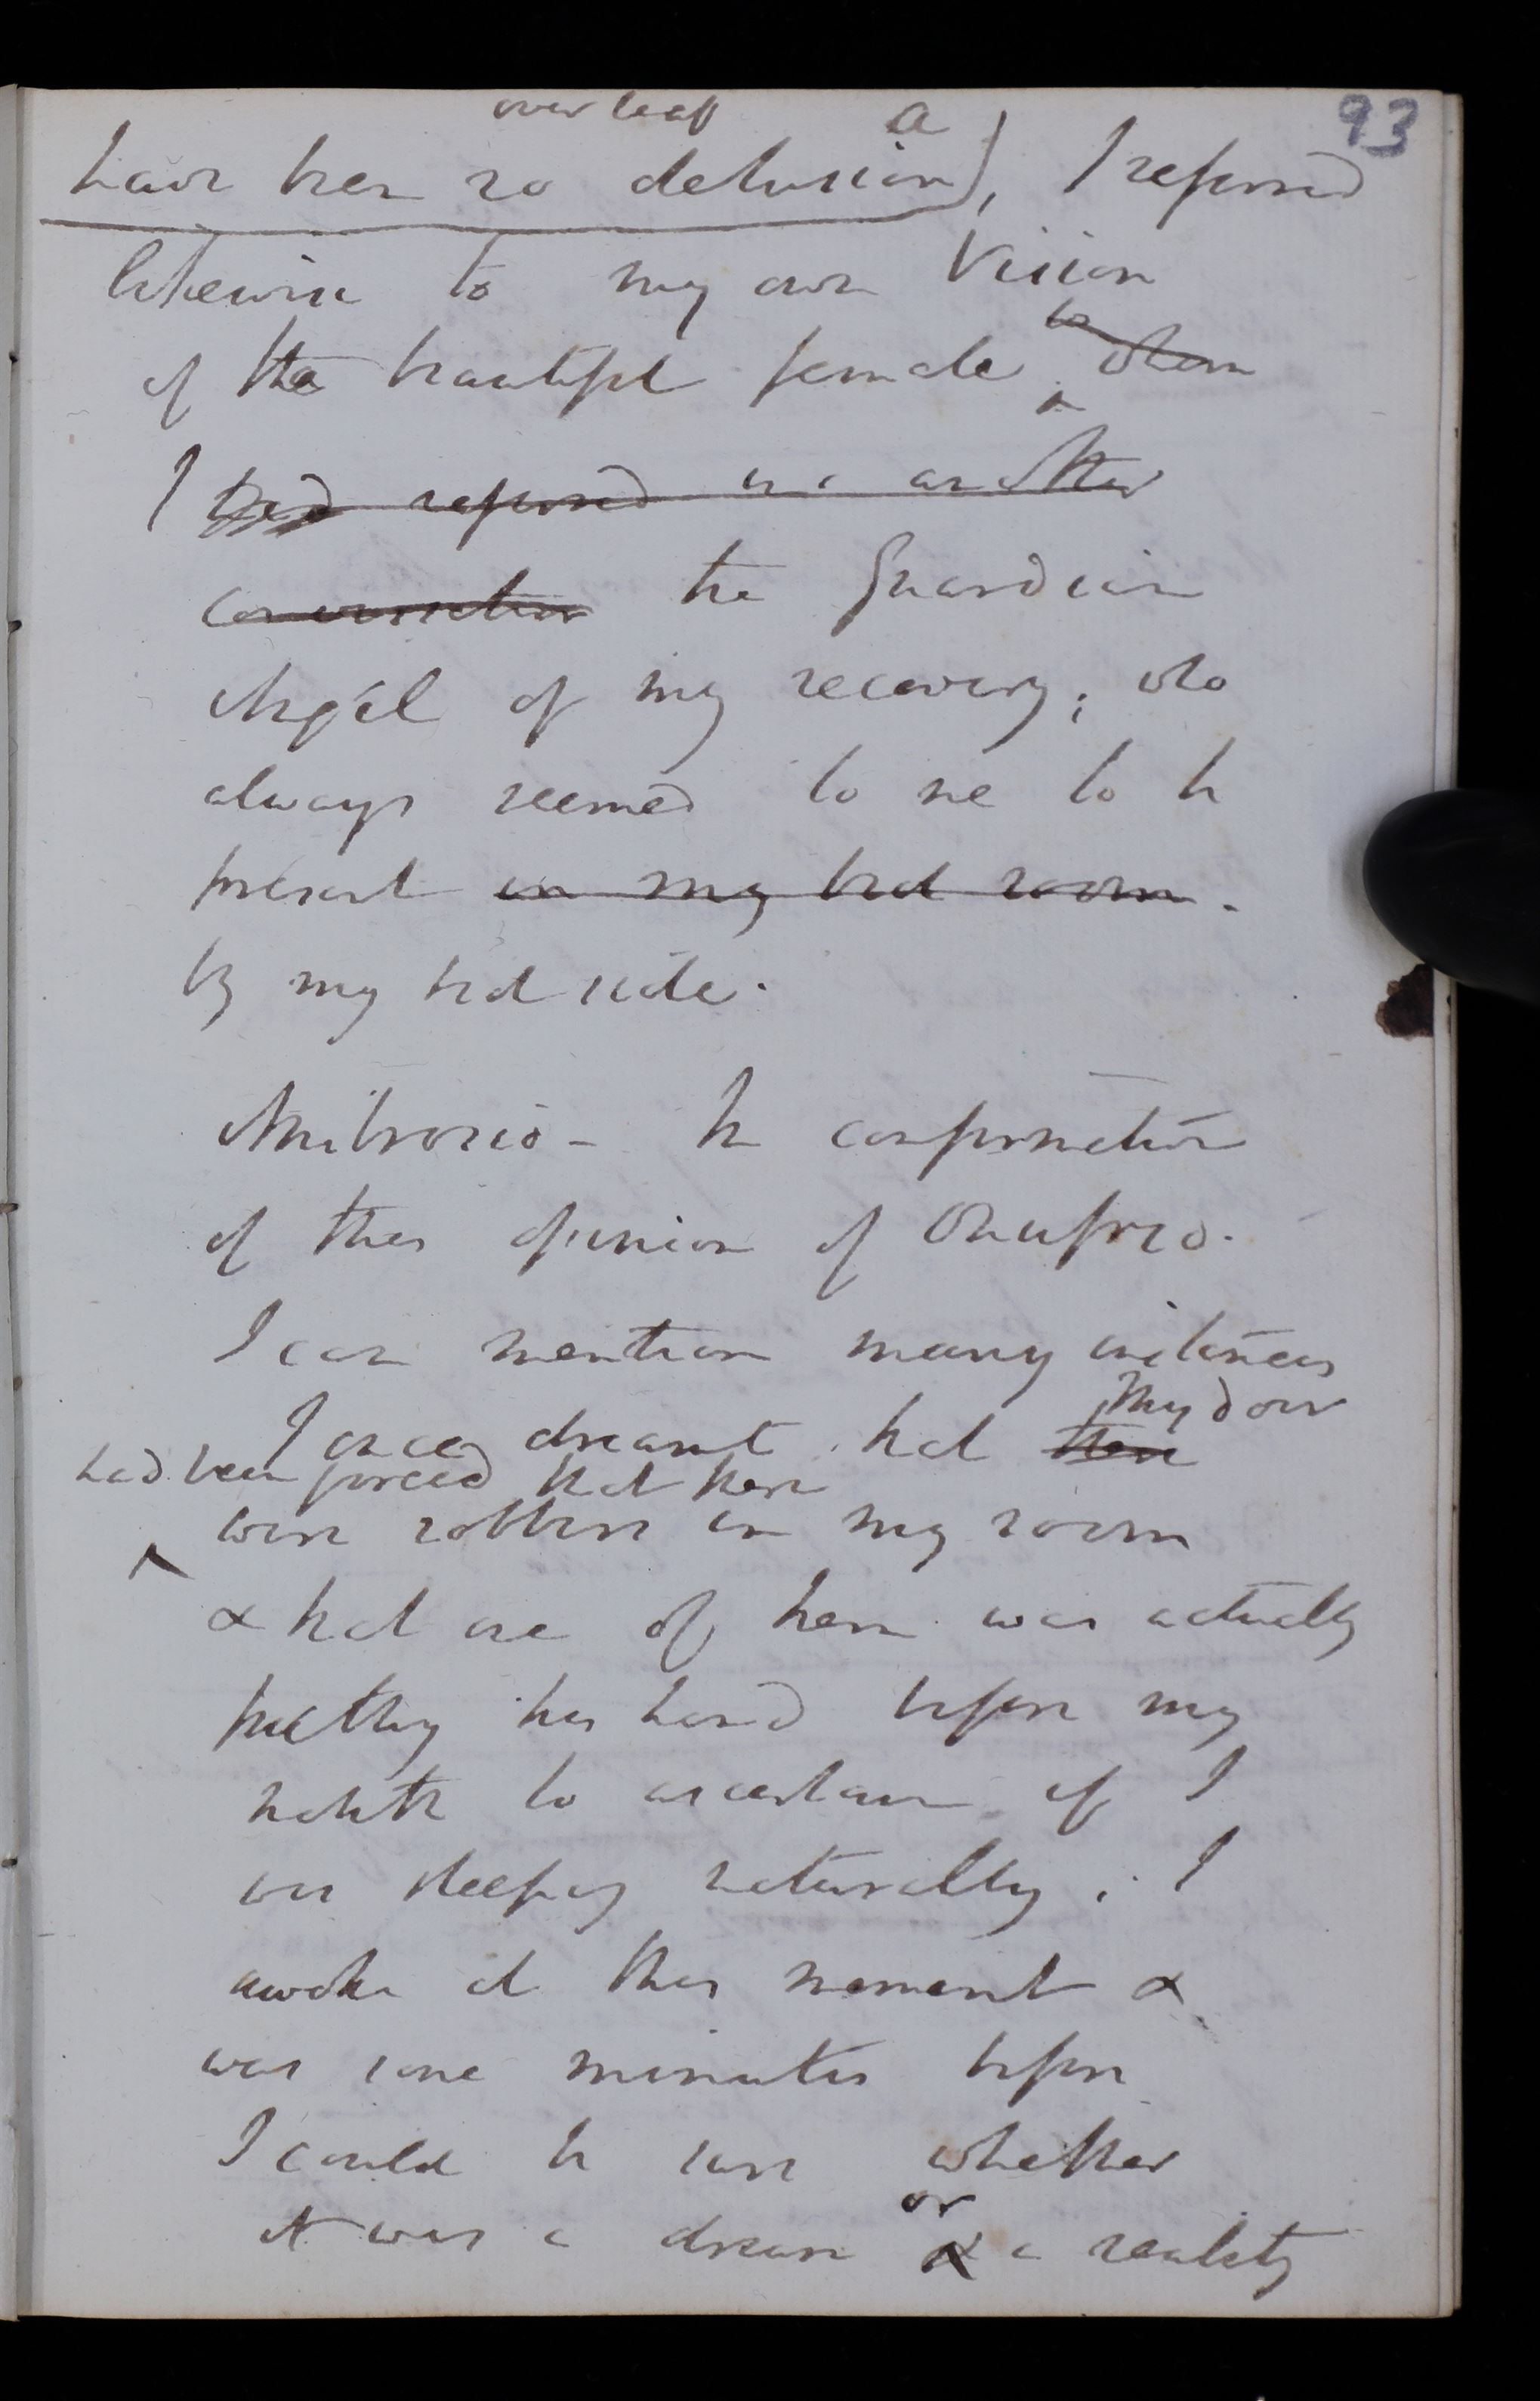 over leaf a 93
have been no delusion), I referred
likewise to my own Vision
of the beautiful female to whom
I had referred in another
conversation the Guardian
Angel of my recovery; who
always seemed to me to be
present in my bed room.
by my bed side.
Ambrosio - In confirmation
of this opinion of Onufrio.
I can mention many instances
My door
I once dreamt that there
had been forced that there
were robbers in my room
& that one of them was actually
putting his hand before my
mouth to ascertain if I
was sleeping naturally; I
awoke at this moment &
was some minutes before
I could be sure whether
or
it was a dream & a reality